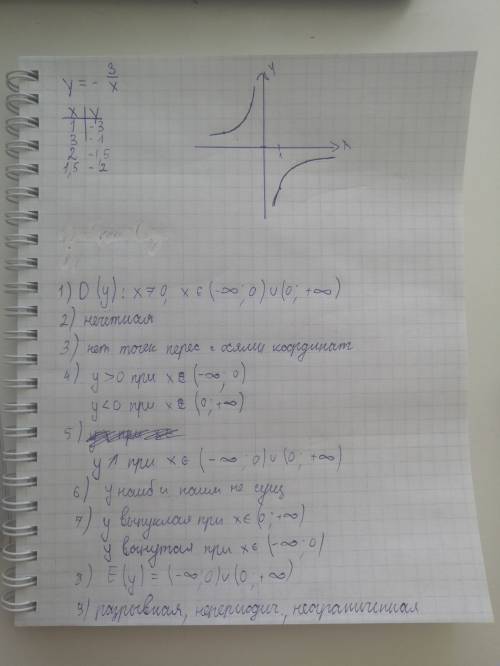 y = - 3/x
y
x
x y
1 -3
3 -1
2 -1,5
1,5 -2
1) D(y): x≠0, x ∈ (-∞; 0) ∪ (0; +∞)
2) нечетная
3) нет точек перес с осями координат
4) y > 0 при x ∈ (-∞; 0)
y < 0 при x ∈ (0; +∞)
5)
y ↑ при x ∈ (-∞; 0) ∪ (0; +∞)
6) y наиб и наим не сущ
7) y выпуклая при x ∈ (0; +∞)
y вогнутая при x ∈ (-∞; 0)
8) E(y) = (-∞; 0) ∪ (0; +∞)
9) разрывная, непериодич, неограниченная